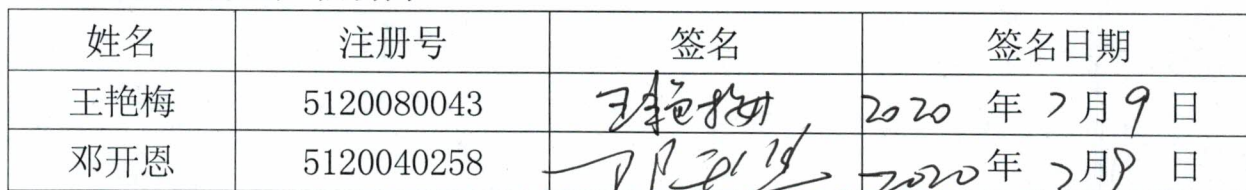 姓名 注册号 签名 签名日期
王艳梅 5120080043 王艳梅 2020 年 7 月 9 日
邓开恩 5120040258 邓开恩 2020 年 7 月 9 日